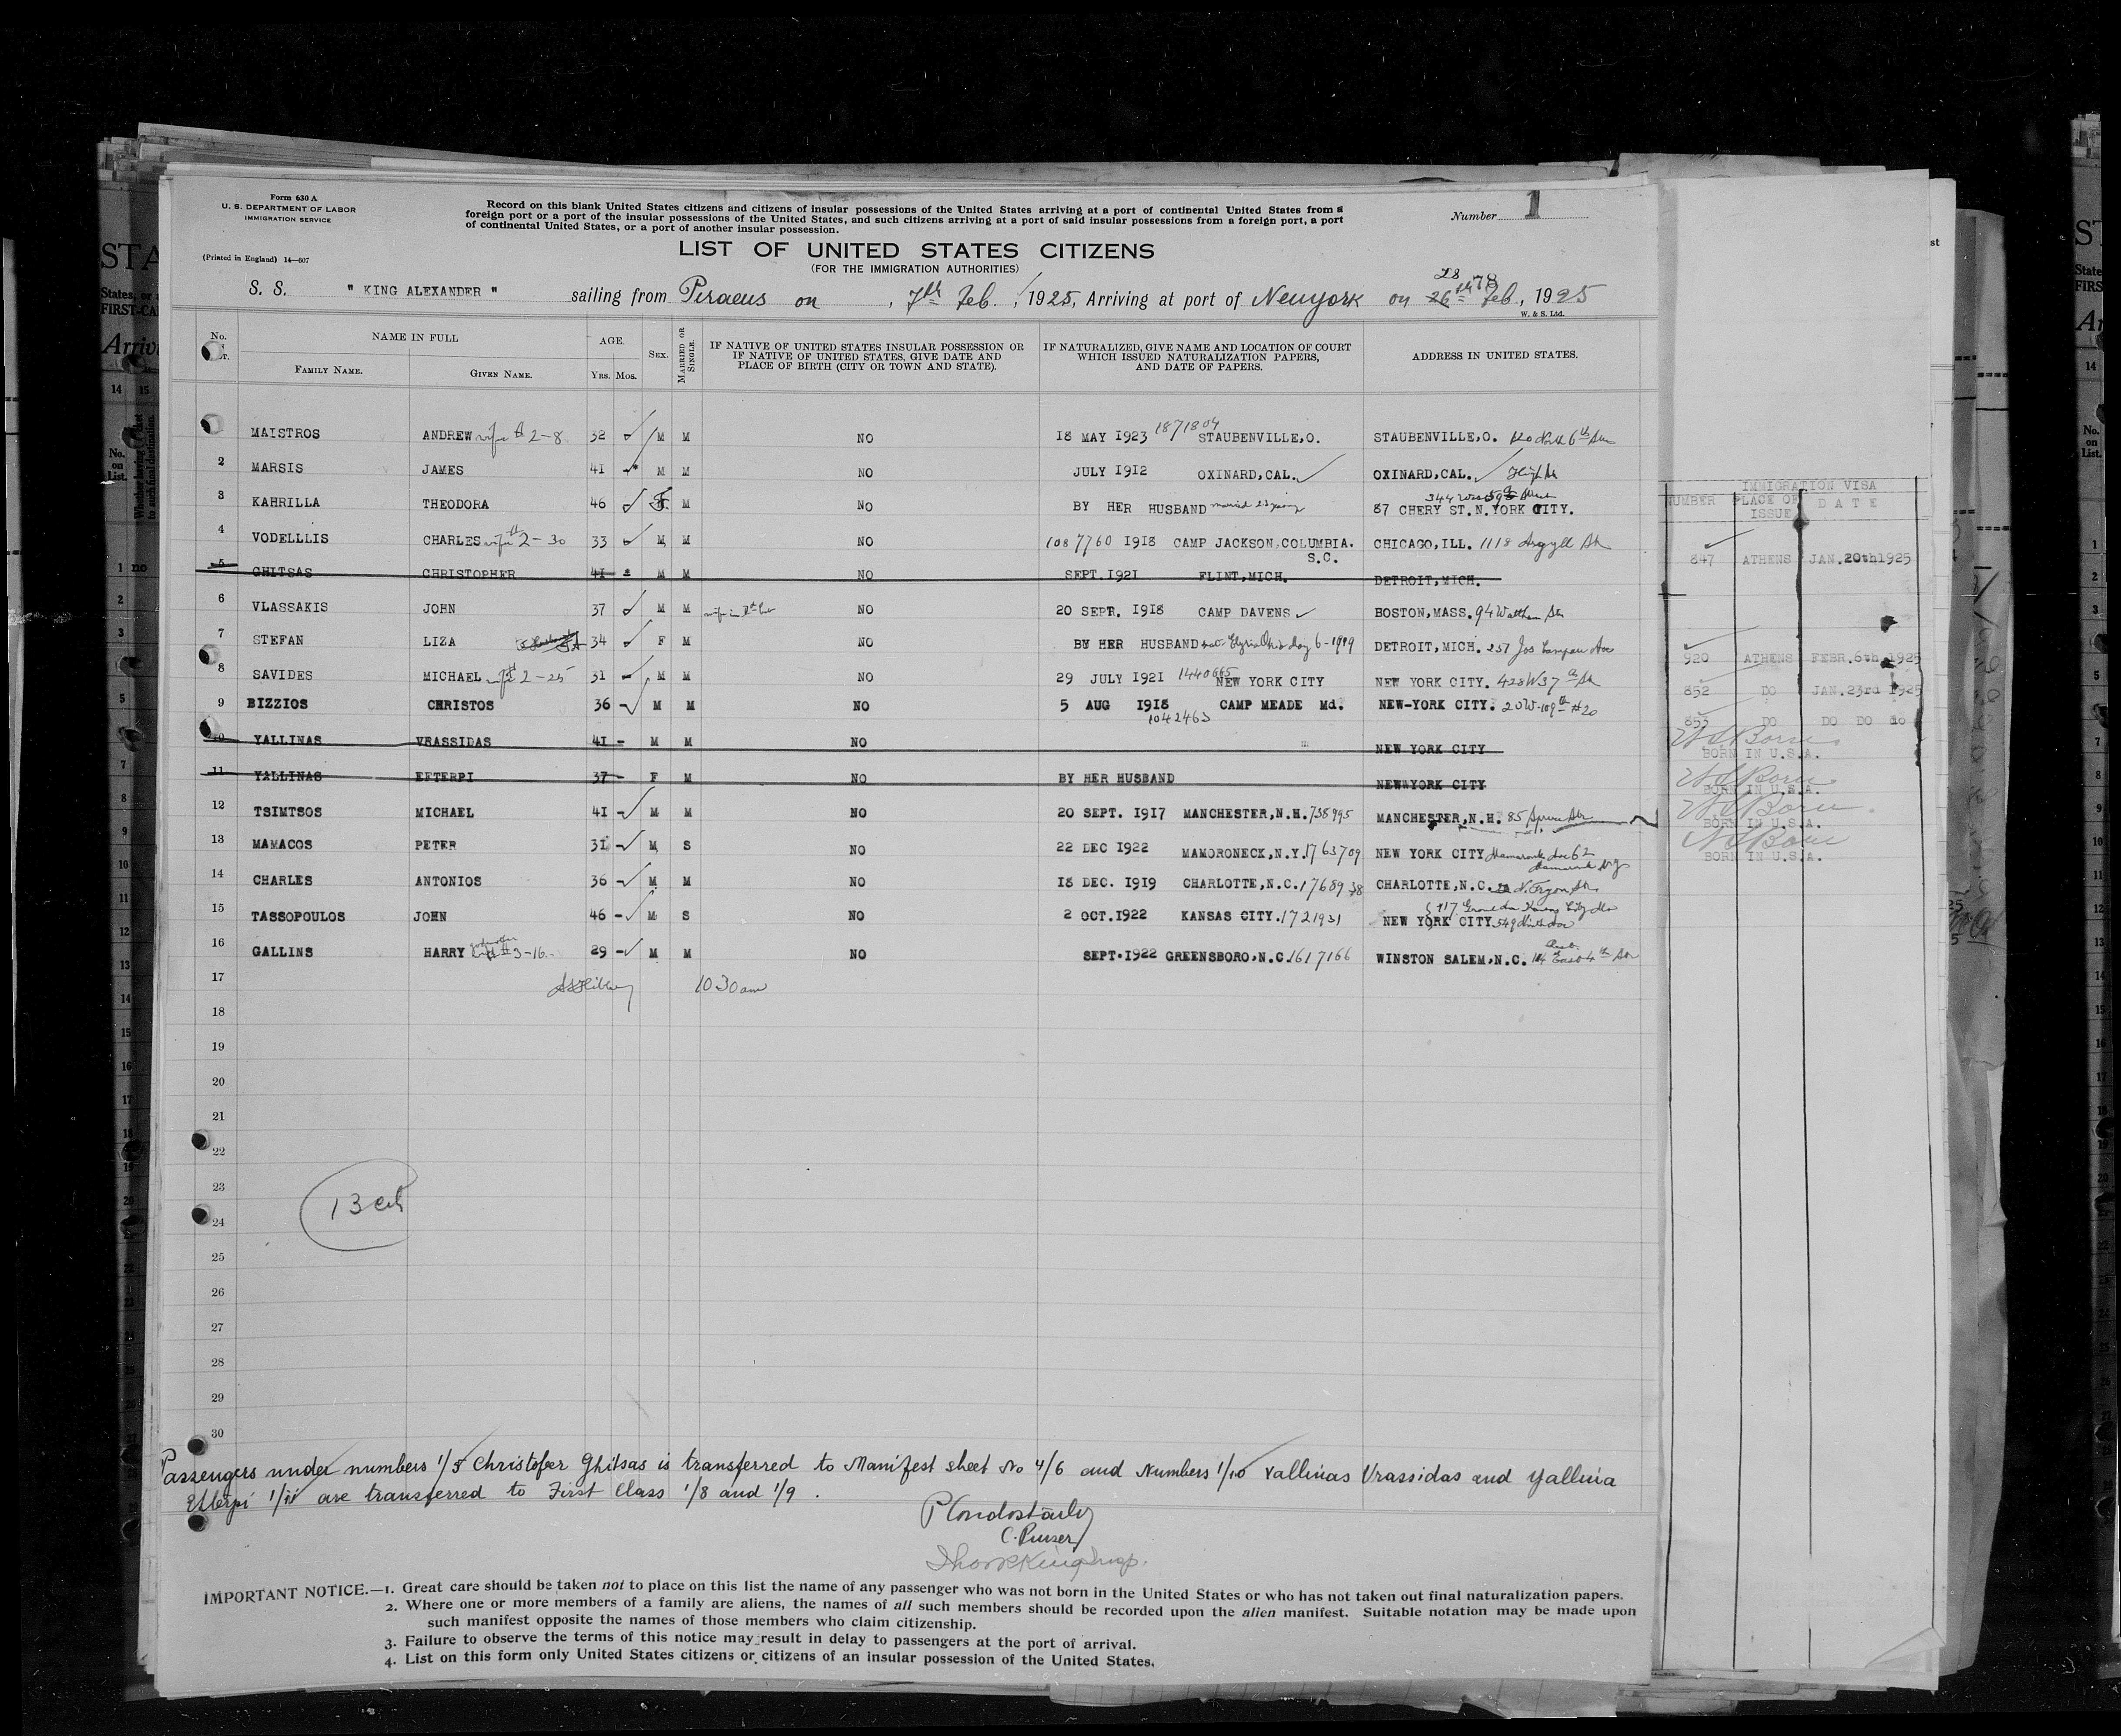 Form 630 A
U. S. DEPARTMENT OF LABOR
IMMIGRATION SERVICE
(Printed in England) 14—607
Record on this blank United States citizens and citizens of insular possessions of the United States arriving at a port of continental United States from a
foreign port or a port of the insular possessions of the United States, and such citizens arriving at a port of said insular possessions from a foreign port, a port
of continental United States, or a port of another insular possession.
Number 1
LIST OF UNITED STATES CITIZENS
(FOR THE IMMIGRATION AUTHORITIES)
S. S. " KING ALEXANDER " sailing from Piraeus on , 7th Feb. , 1925, Arriving at port of Newyork on 26th 28 Feb , 1925
W. & S. Ltd.
No. NAME IN FULL AGE. SEX. MARRIED OR SINGLE. IF NATIVE OF UNITED STATES INSULAR POSSESSION OR IF NATIVE OF UNITED STATES, GIVE DATE AND PLACE OF BIRTH (CITY OR TOWN AND STATE). IF NATURALIZED, GIVE NAME AND LOCATION OF COURT WHICH ISSUED NATURALIZATION PAPERS, AND DATE OF PAPERS. ADDRESS IN UNITED STATES.
FAMILY NAME. GIVEN NAME. YRS. MOS.
MAISTROS ANDREW wife # 2-8 32 M M NO 18 MAY 1923 1871804 STAUBENVILLE,O. STAUBENVILLE,O. 6th
2 MARSIS JAMES 41 M M NO JULY 1912 OXINARD,CAL. OXINARD,CAL.
3 KAHRILLA THEODORA 46 F M NO BY HER HUSBAND married 87 CHERY ST.N.YORK CITY. 344 West
4 VODELLLIS CHARLES wife 2-30 33 M M NO 1087760 1918 CAMP JACKSON,COLUMBIA. S.C. CHICAGO,ILL. 1118 Argyll St
5 GHITSAS CHRISTOPHER 41 M M NO SEPT.1921 FLINT,MICH. DETROIT,MICH.
6 VLASSAKIS JOHN 37 M M wife in NO 20 SEPR. 1918 CAMP DAVENS BOSTON,MASS. 94 Waltham St
7 STEFAN LIZA 34 F M NO BY HER HUSBAND DETROIT, MICH. 257 Jos Campau Ave
8 SAVIDES MICHAEL wife 2-25 31 M M NO 29 JULY 1921 1440665 NEW YORK CITY NEW YORK CITY. 428 W 37th St
9 BIZZIOS CHRISTOS 36 M M NO 5 AUG 1918 1042463 CAMP MEADE Md. NEW-YORK CITY. 20 W-109th #20
10 YALLINAS VRASSIDAS 41 M M NO NEW YORK CITY
11 YALLINAS EFTERPI 37 F M NO BY HER HUSBAND NEWWYORK CITY
12 TSIMTSOS MICHAEL 41 M M NO 20 SEPT. 1917 MANCHESTER,N.H. 738995 MANCHESTER,N.H. 85 Spruce Str
13 MAMACOS PETER 31 M S NO 22 DEC 1922 MAMORONECK,N.Y. 1763709 NEW YORK CITY Mamaroneck Ave 62
14 CHARLES ANTONIOS 36 M M NO 18 DEC. 1919 CHARLOTTE,N.C. 1768938 CHARLOTTE,N.C.
15 TASSOPOULOS JOHN 46 M S NO 2 OCT.1922 KANSAS CITY. 1721931 NEW YORK CITY 549
16 GALLINS HARRY 3-16 29 M M NO SEPT.1922 GREENSBORO,N.C. 1617166 WINSTON SALEM,N.C. East 4th Str
17 10 30 am
18
19
20
21
22
23
24
25
26
27
28
29
30
13
Passengers under numbers 1/5 Christofer Ghitsas is transferred to Manifest sheet No 4/6 and Numbers 1/10 Yallinas Vrassidas and Yallina
Efterpi 1/11 are transferred to First Class 1/8 and 1/9 .
C. Purser
IMPORTANT NOTICE.—1. Great care should be taken not to place on this list the name of any passenger who was not born in the United States or who has not taken out final naturalization papers.
2. Where one or more members of a family are aliens, the names of all such members should be recorded upon the alien manifest. Suitable notation may be made upon
such manifest opposite the names of those members who claim citizenship.
3. Failure to observe the terms of this notice may result in delay to passengers at the port of arrival.
4. List on this form only United States citizens or citizens of an insular possession of the United States.
IMMIGRATION VISA
NUMBER PLACE OF ISSUE DATE
847 ATHENS JAN.20th1925
920 ATHENS FEBR.6th 1925
852 DO JAN.23rd 1925
853 DO DO DO do
US Born
BORN IN U.S.A.
US Born
BORN IN U.S.A.
US Born
BORN IN U.S.A.
US Born
BORN IN U.S.A.